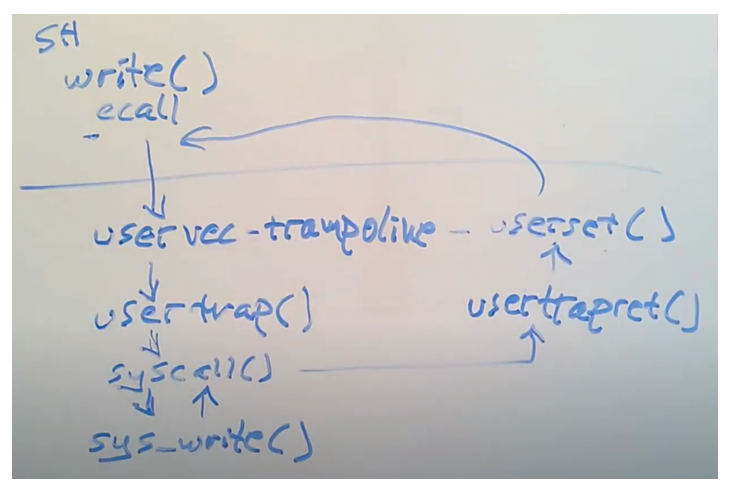 SH
write()
ecall
uservec - trampoline - userret()
usertrap()
usertrapret()
syscall()
sys_write()